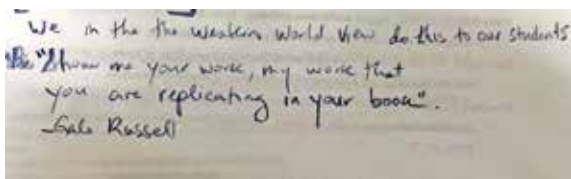 We in the the western World View do this to our students
"Show me your work, my work that
you are replicating in your book".
-Gale Russell